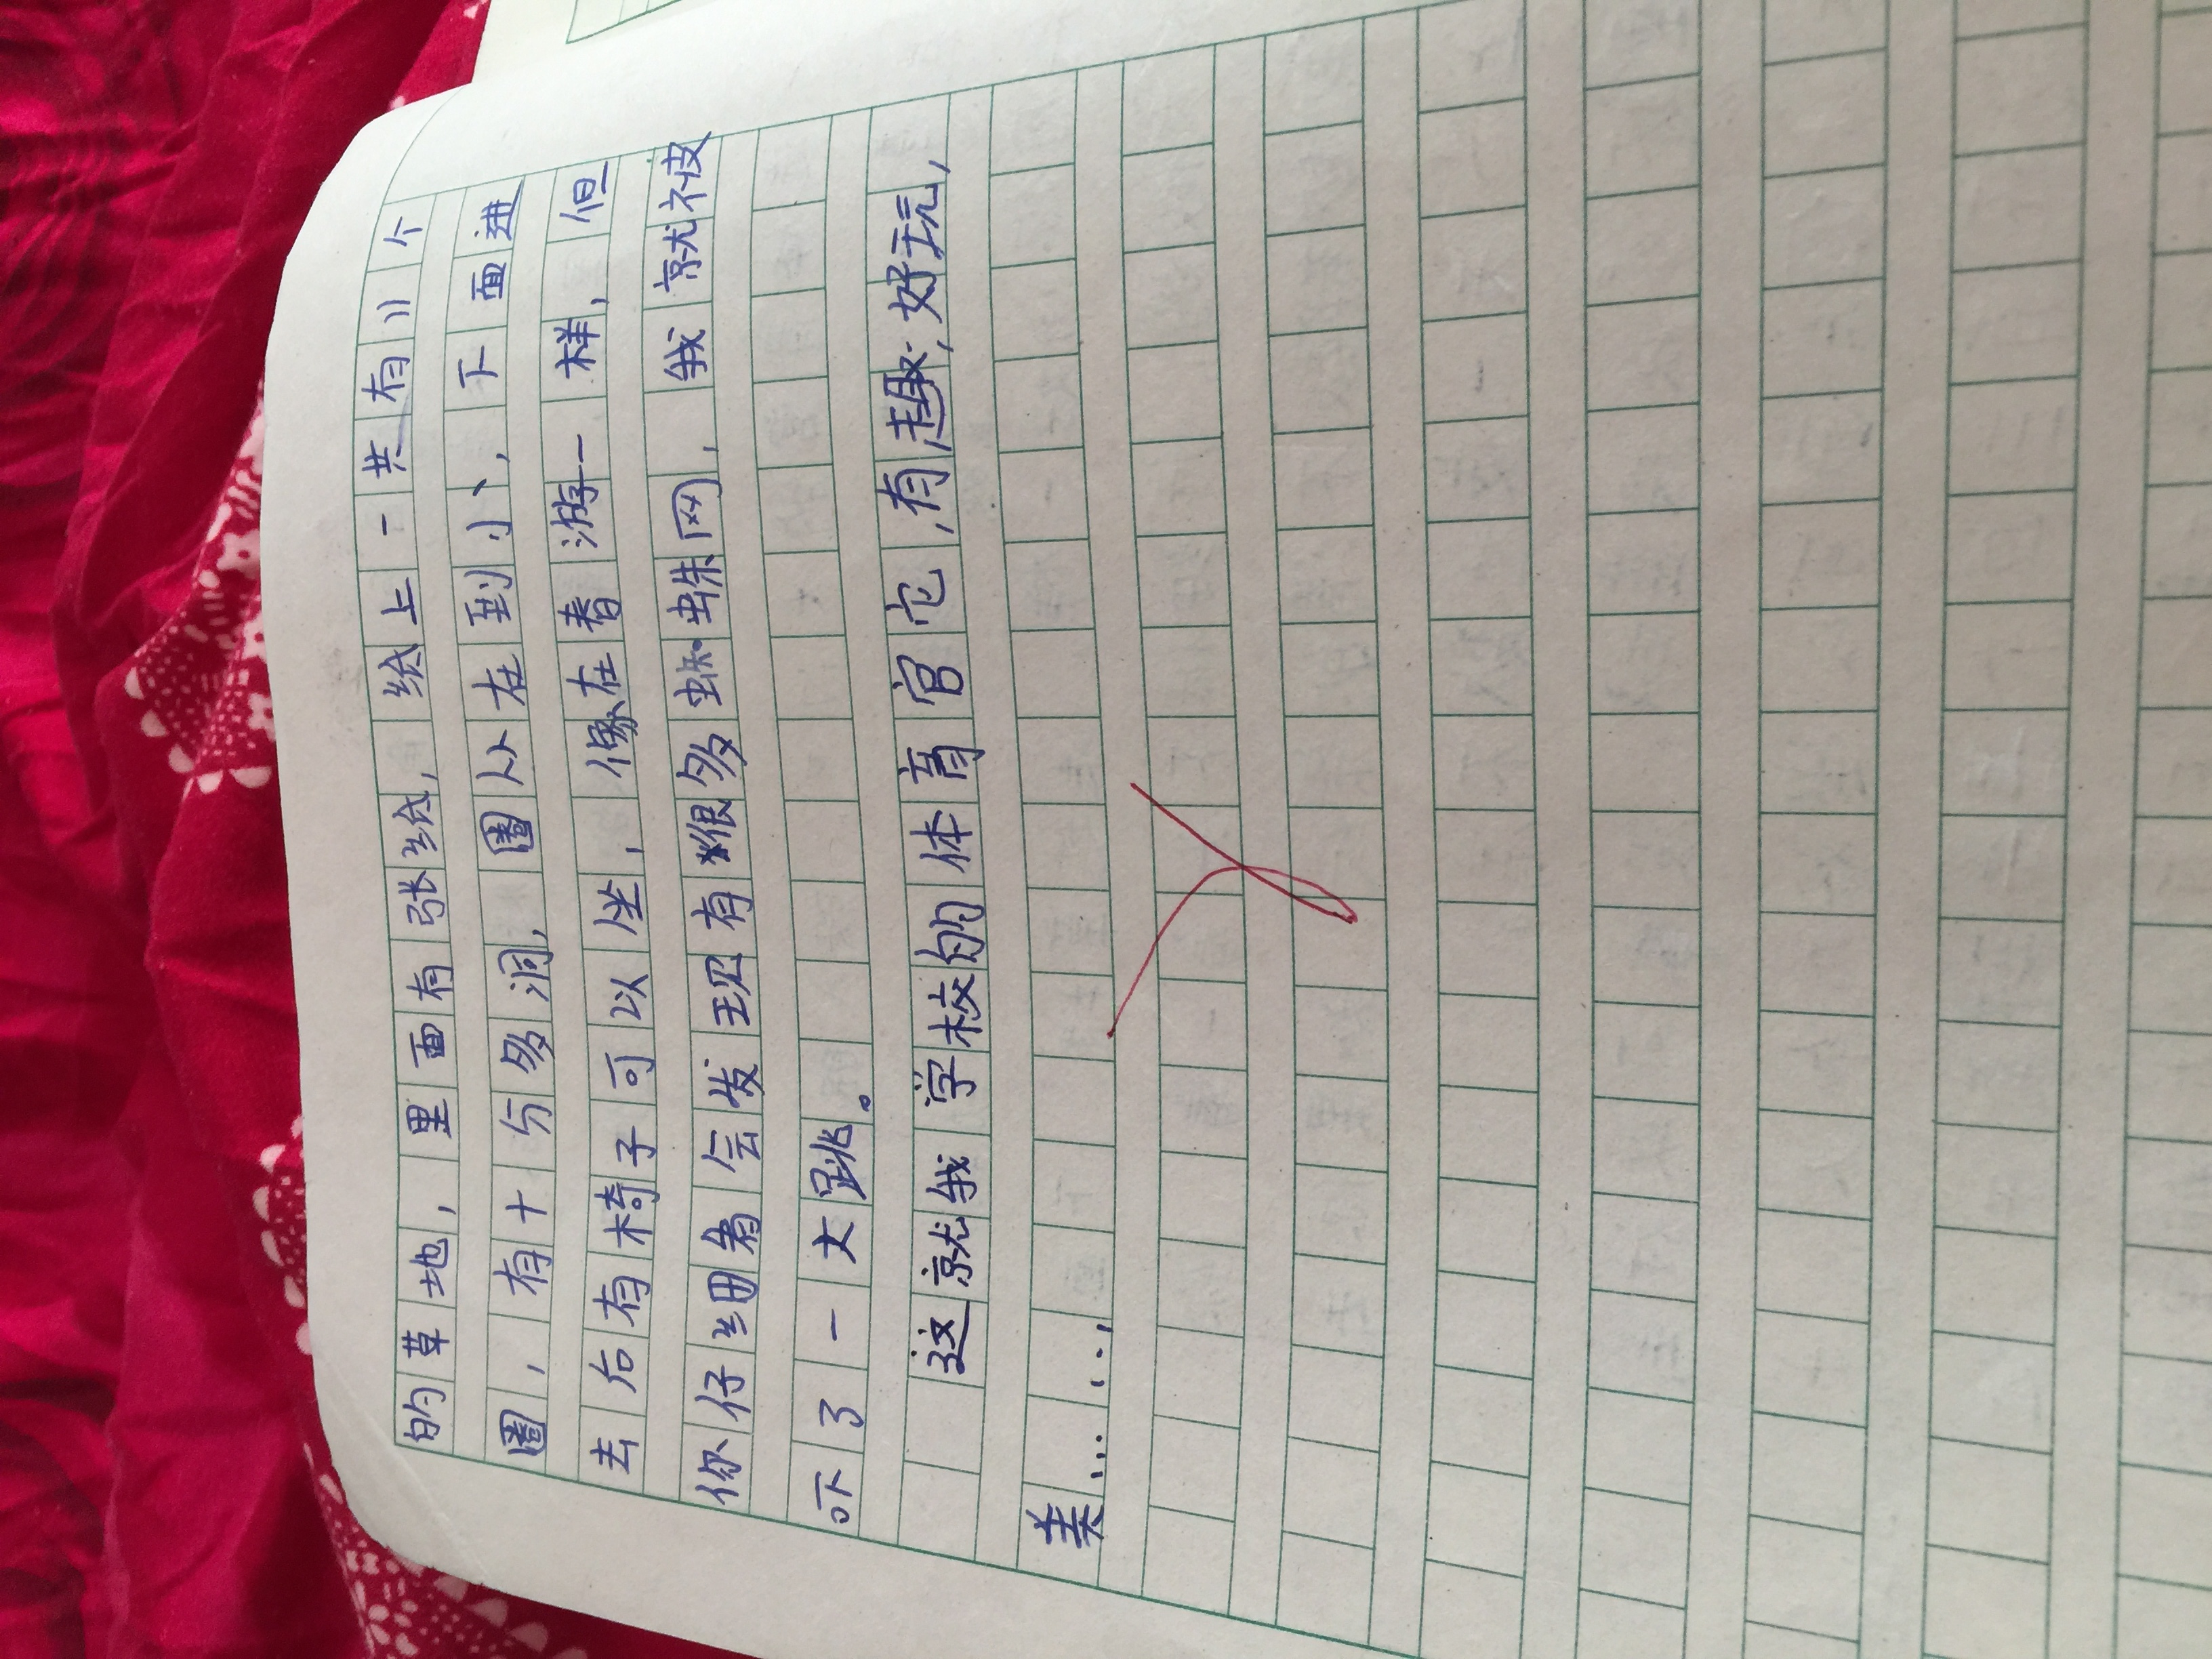 的草地，里面有张绘，绘上一共有11个
圈，有十分多洞，圈从在到小，下面进
去后有椅子可以坐，像在春游一样，但
你仔细看会发现有很多蜘蛛网，我就被
吓了一大跳。
这就我学校的体育官它，有趣，好玩，
美……，